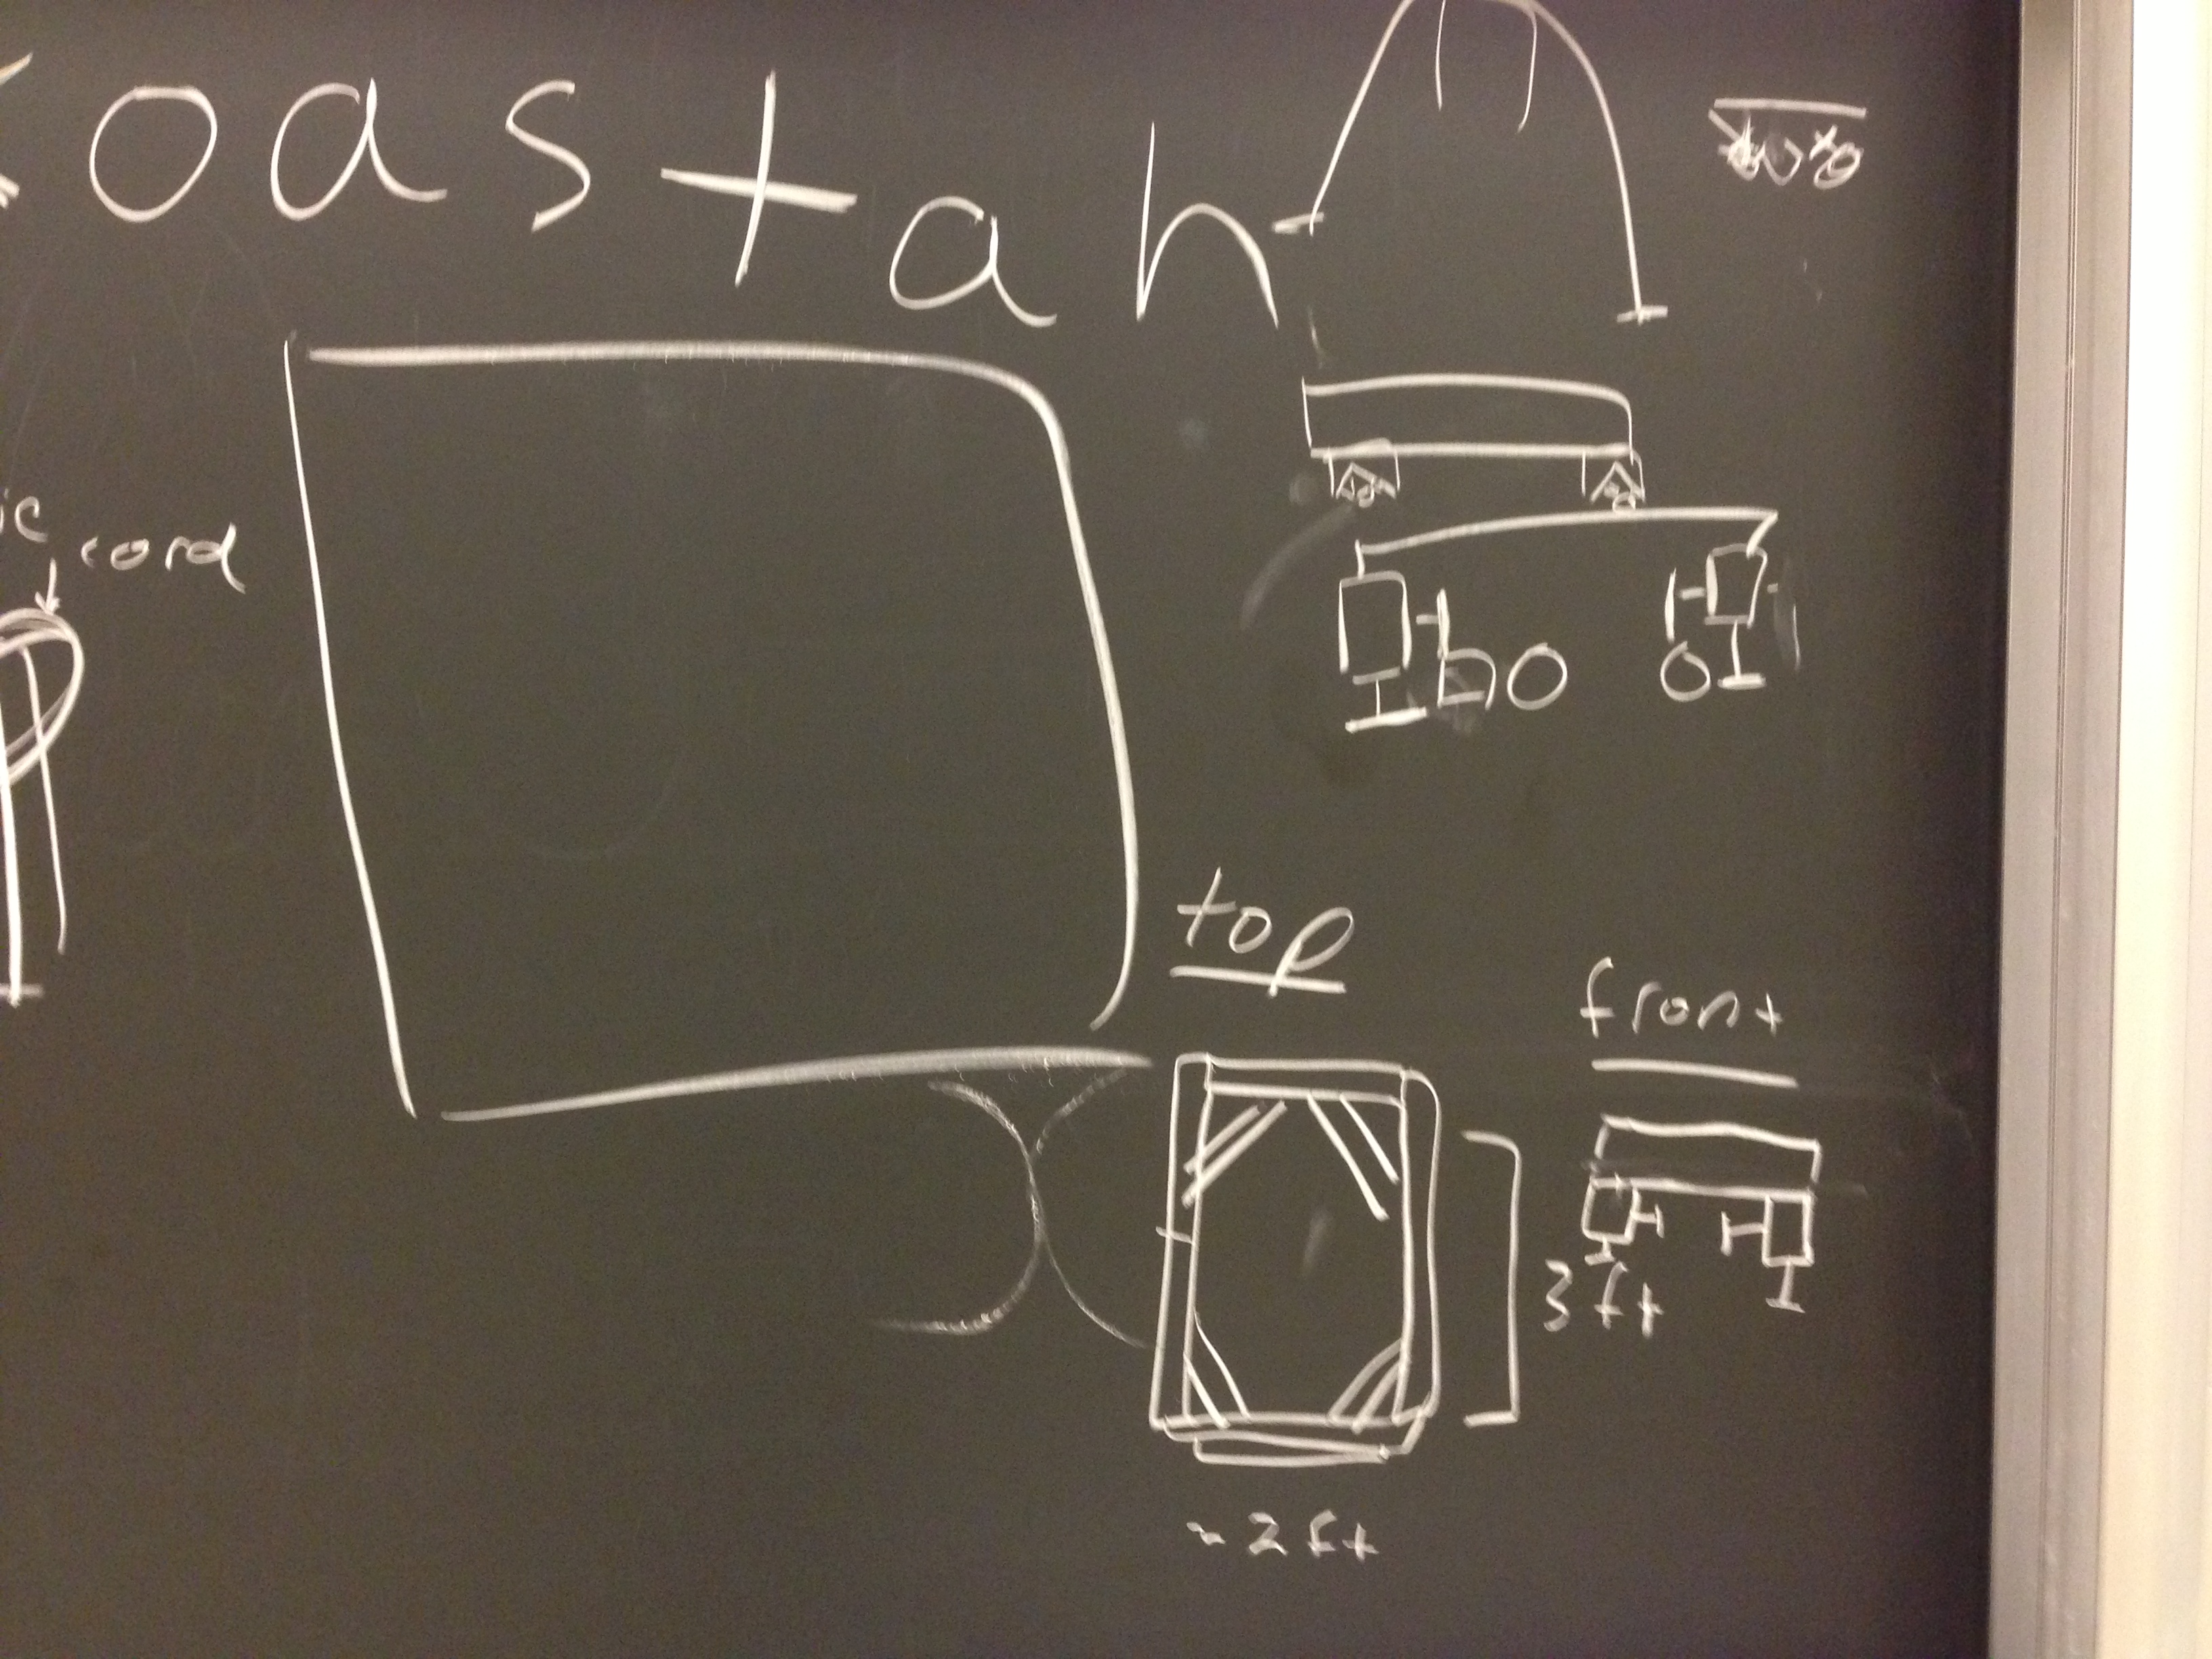 oastah
cord
top
front
3ft
~2ft